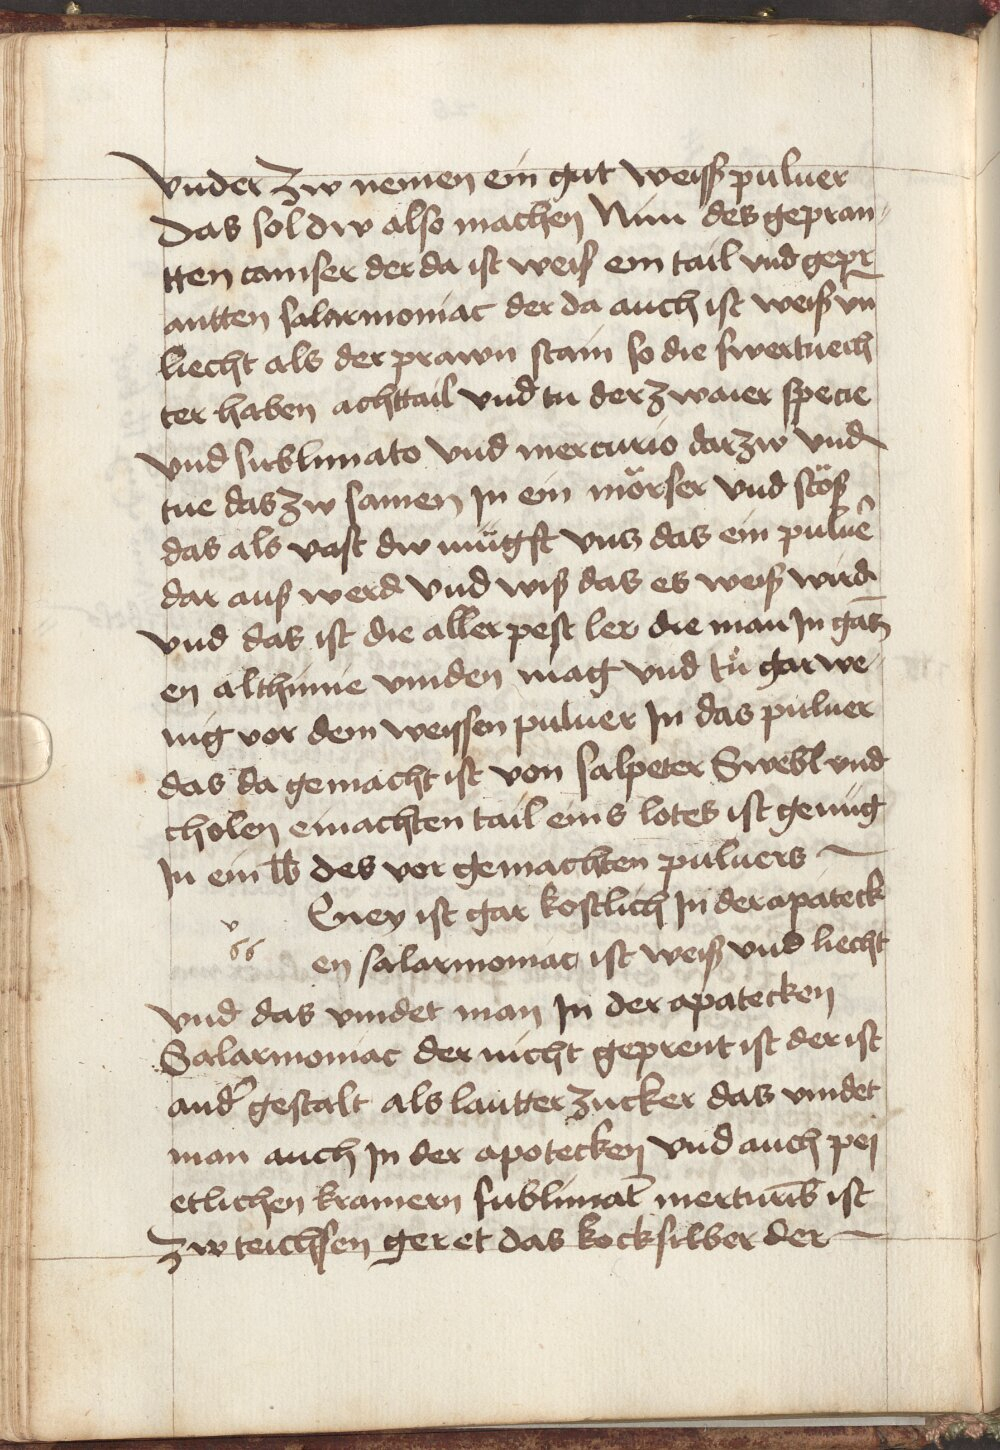 vnder zw nemen ein gut weiss puluer
Das sol dw also machen Nim des gepran-
tten camfer der da ist weiß ein tail vnd gepr
antten salarmoniac der da auch ist weiß vn̄
liecht als der prawn stain so die swertuech
ter haben achttail vnd tu der zwaier specie
vnd sublimato vnd mercurio dar zw vnd
tue das zw samen Jn ein mörser vnd stöß
das als vast dw mügst vnz das ein puluê
dar auß werd vnd wiß das es weiß wird
vnd das ist die aller pest ler die man Jn gātz
en alchimie vinden mag vnd tů gar we-
nig vor dem weissen puluer Jn das puluer
das da gemacht ist von salpeter Swebl vnd
cholen ein achten tail eins lotes ist genüg
Jn ein lb des vor gemachten puluers
Eney ist gar kostlich Jn der apateck
66
en salarmoniac ist weiß vnd liecht
vnd das vindet man Jn der apatecken
Salarmoniac der nicht geprent ist der ist
and̕ gestalt als lautter zucker das vindet
man auch Jn der apotecken vnd auch pei
etlichen kramern sublimat̄ ist
zw teichsen geret das kocksilber der